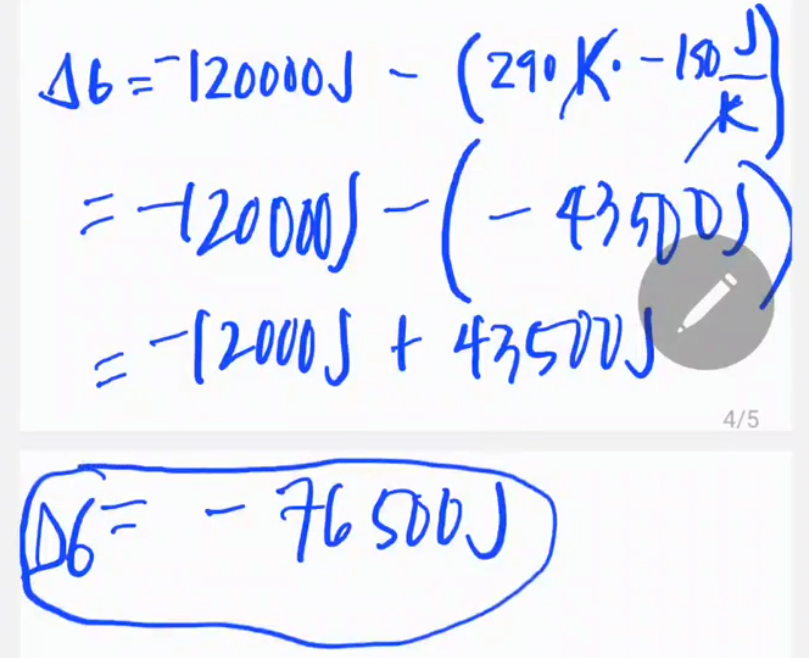 ΔG = -120000J - (290K · -150 J/K)
= -120000J - (-43500J)
= -12000J + 43500J
4/5
ΔG = -76500J